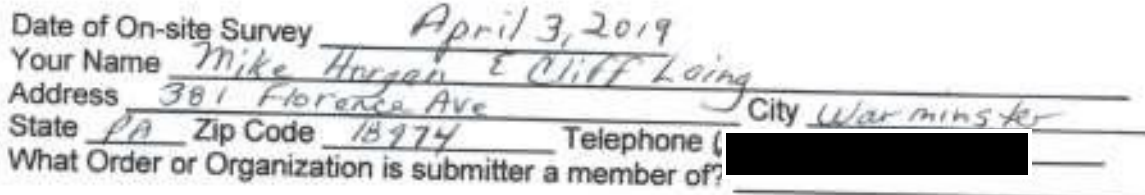 Date of On-site Survey April 3, 2019
Your Name Mike Horgan & Cliff Laing
Address 381 Florence Ave City Warminster
State PA Zip Code 18974 Telephone (
What Order or Organization is submitter a member of?